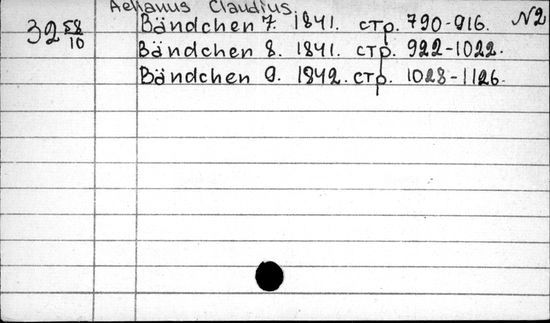 Aelianus Claudius.
32 58/10 Bändchen 7. 1841. стр. 790-916. N2
Bändchen 8. 1841. стр. 922-1022.
Bändchen 9. 1842. стр. 1028-1126.